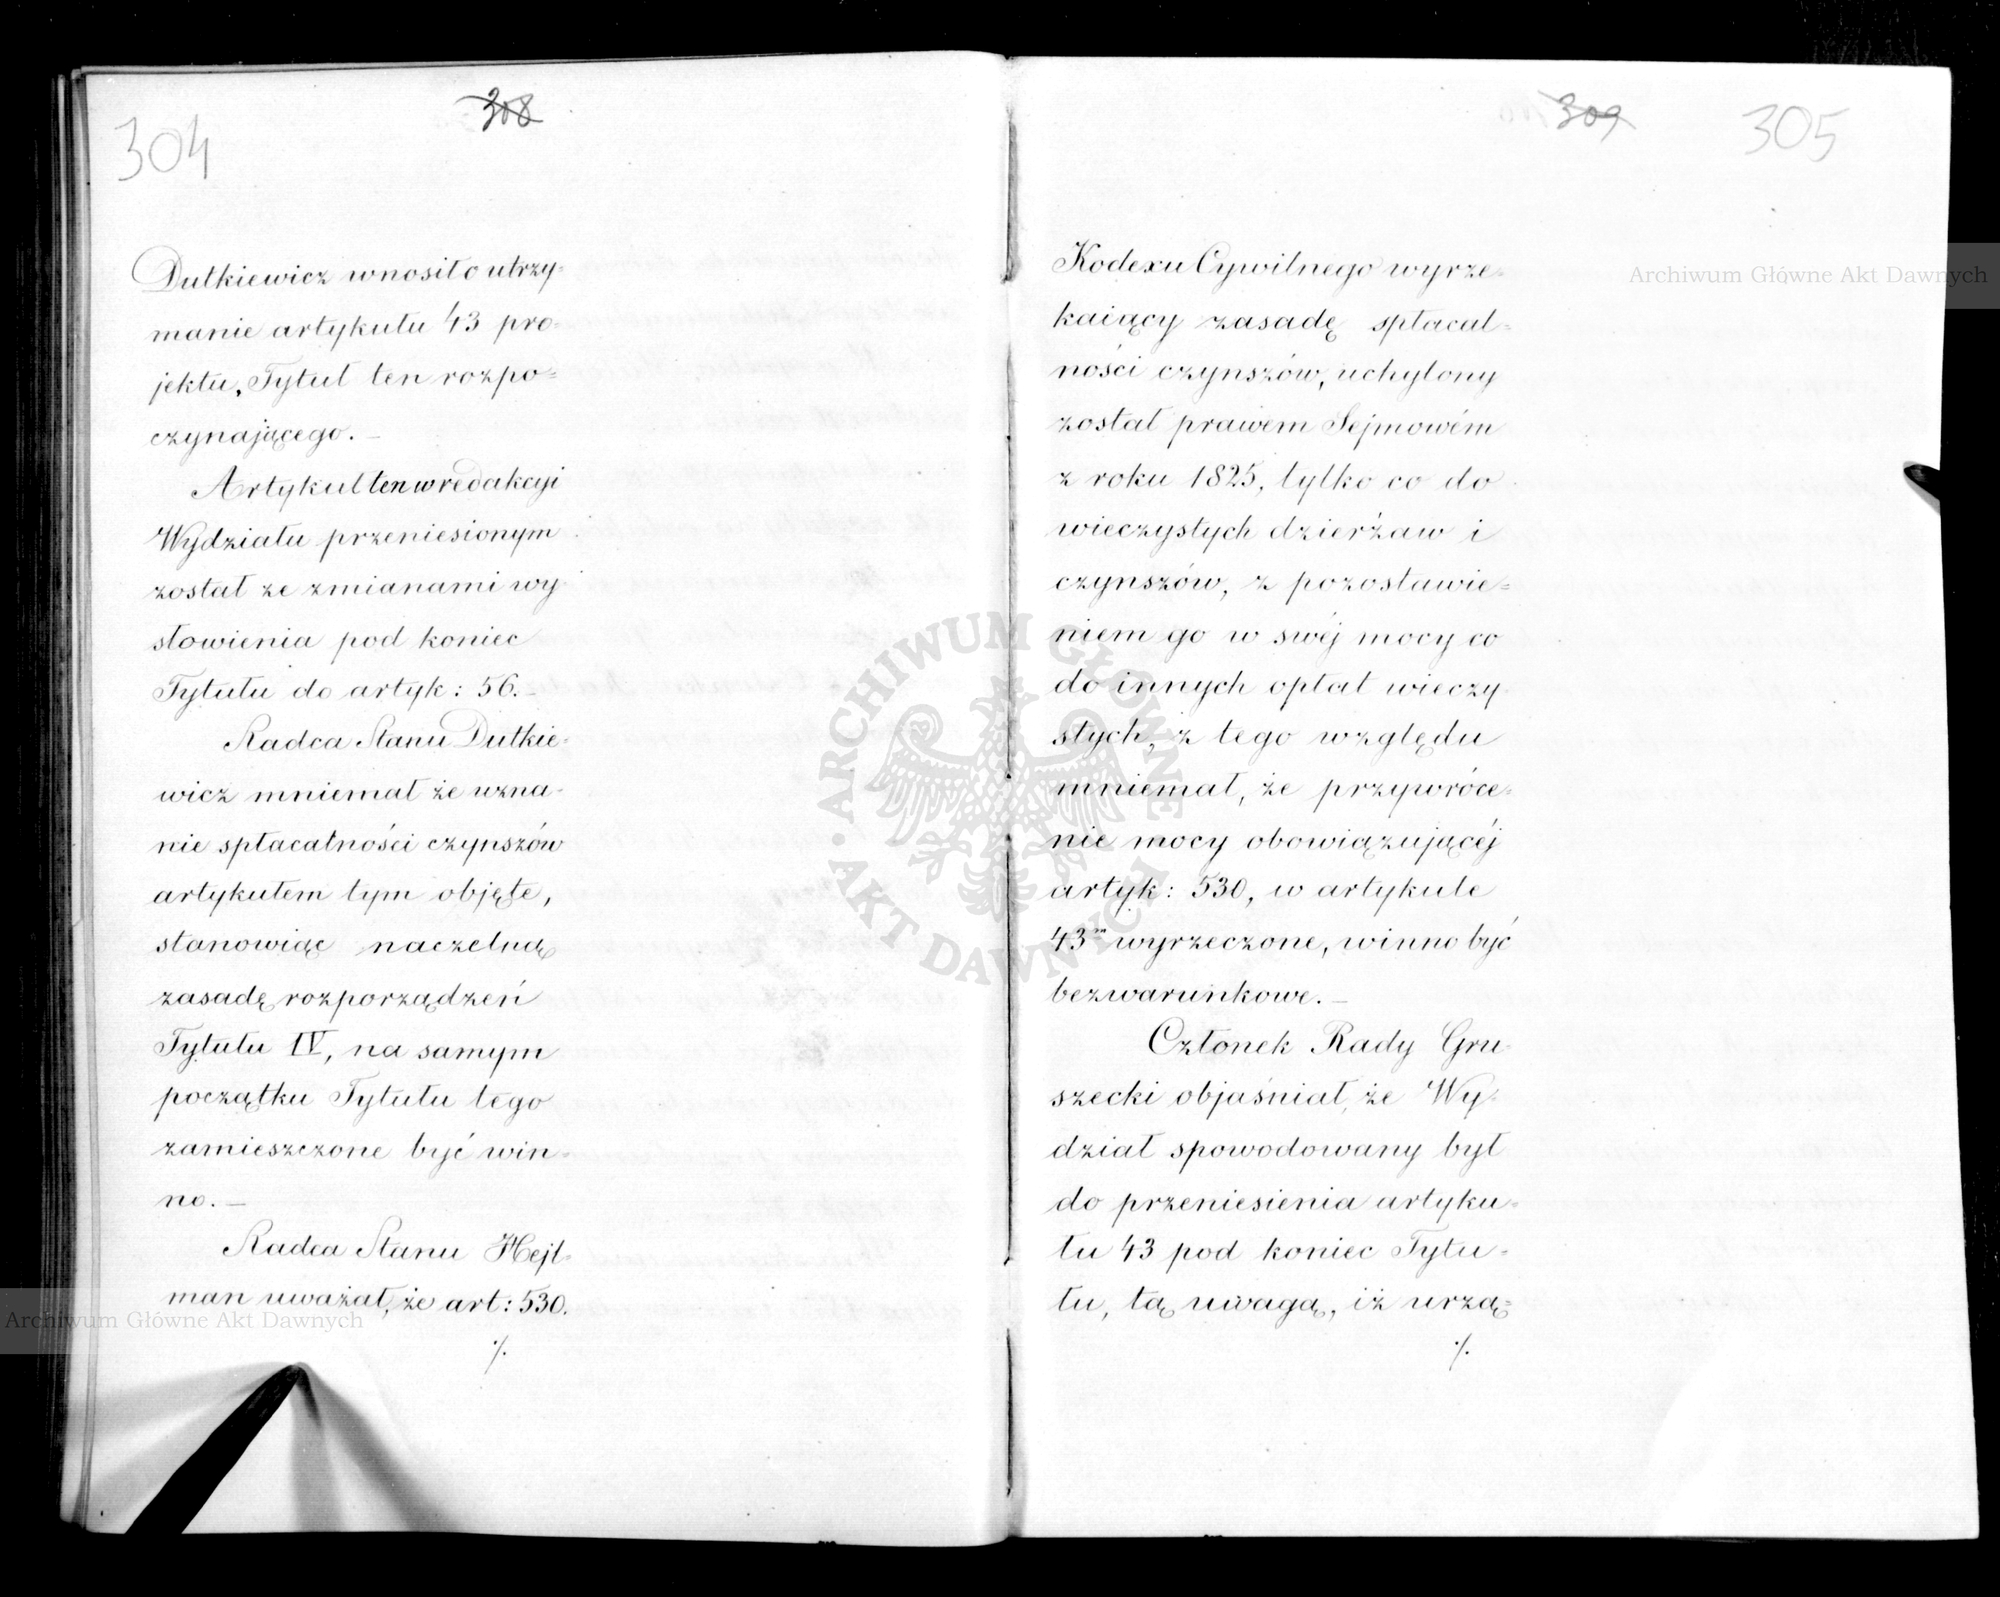 304
308
Dutkiewicz wnosił o utrzy-
manie artykułu 43 pro=
jektu, Tytuł ten rozpo=
czynającego. —
Artykuł ten w redakcyi
Wydziału przeniesionym
został ze zmianami wy
słowienia pod koniec
Tytułu do artyk: 56. —
Radca Stanu Dutkie-
wicz mniemał że uzna-
nie spłacalności czynszów
artykułem tym objęte,
stanowiąc naczelną
zasadę rozporządzeń
Tytułu IV, na samym
początku Tytułu tego
zamieszczone być win=
no. —
Radca Stanu Hejl-
man uważał, że art: 530.
./.
309
305
Kodexu Cywilnego wyrze-
kaiący zasadę spłacal=
ności czynszów, uchylony
został prawem Sejmowém
z roku 1825, tylko co do
wieczystych dzierżaw i
czynszów, z pozostawie=
niem go w swéj mocy co
do innych opłat wieczy-
stych, z tego względu
mniemał, że przywróce=
nie mocy obowiązującéj
artyk: 530, w artykule
43m wyrzeczone, winno być
bezwarunkowe. —
Członek Rady Gru-
szecki objaśniał, że Wy-
dział spowodowany był
do przeniesienia artyku=
łu 43 pod koniec Tytu=
łu, tą uwagą, iż urzą=
./.
Archiwum Główne Akt Dawnych
Archiwum Główne Akt Dawnych
ARCHIWUM GŁÓWNE AKT DAWNYCH